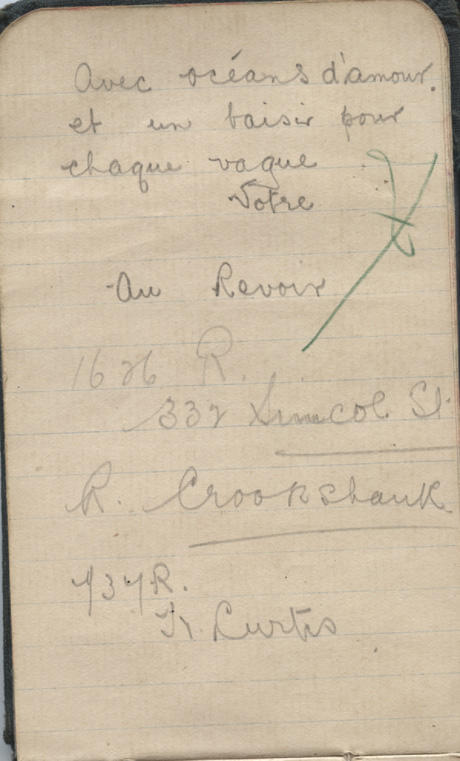 Avec océans d'amour.
et un baisir pour
chaque vague
Votre
Au Revoir
R.
332 St.
R. Crookshank
737R.
Curtis